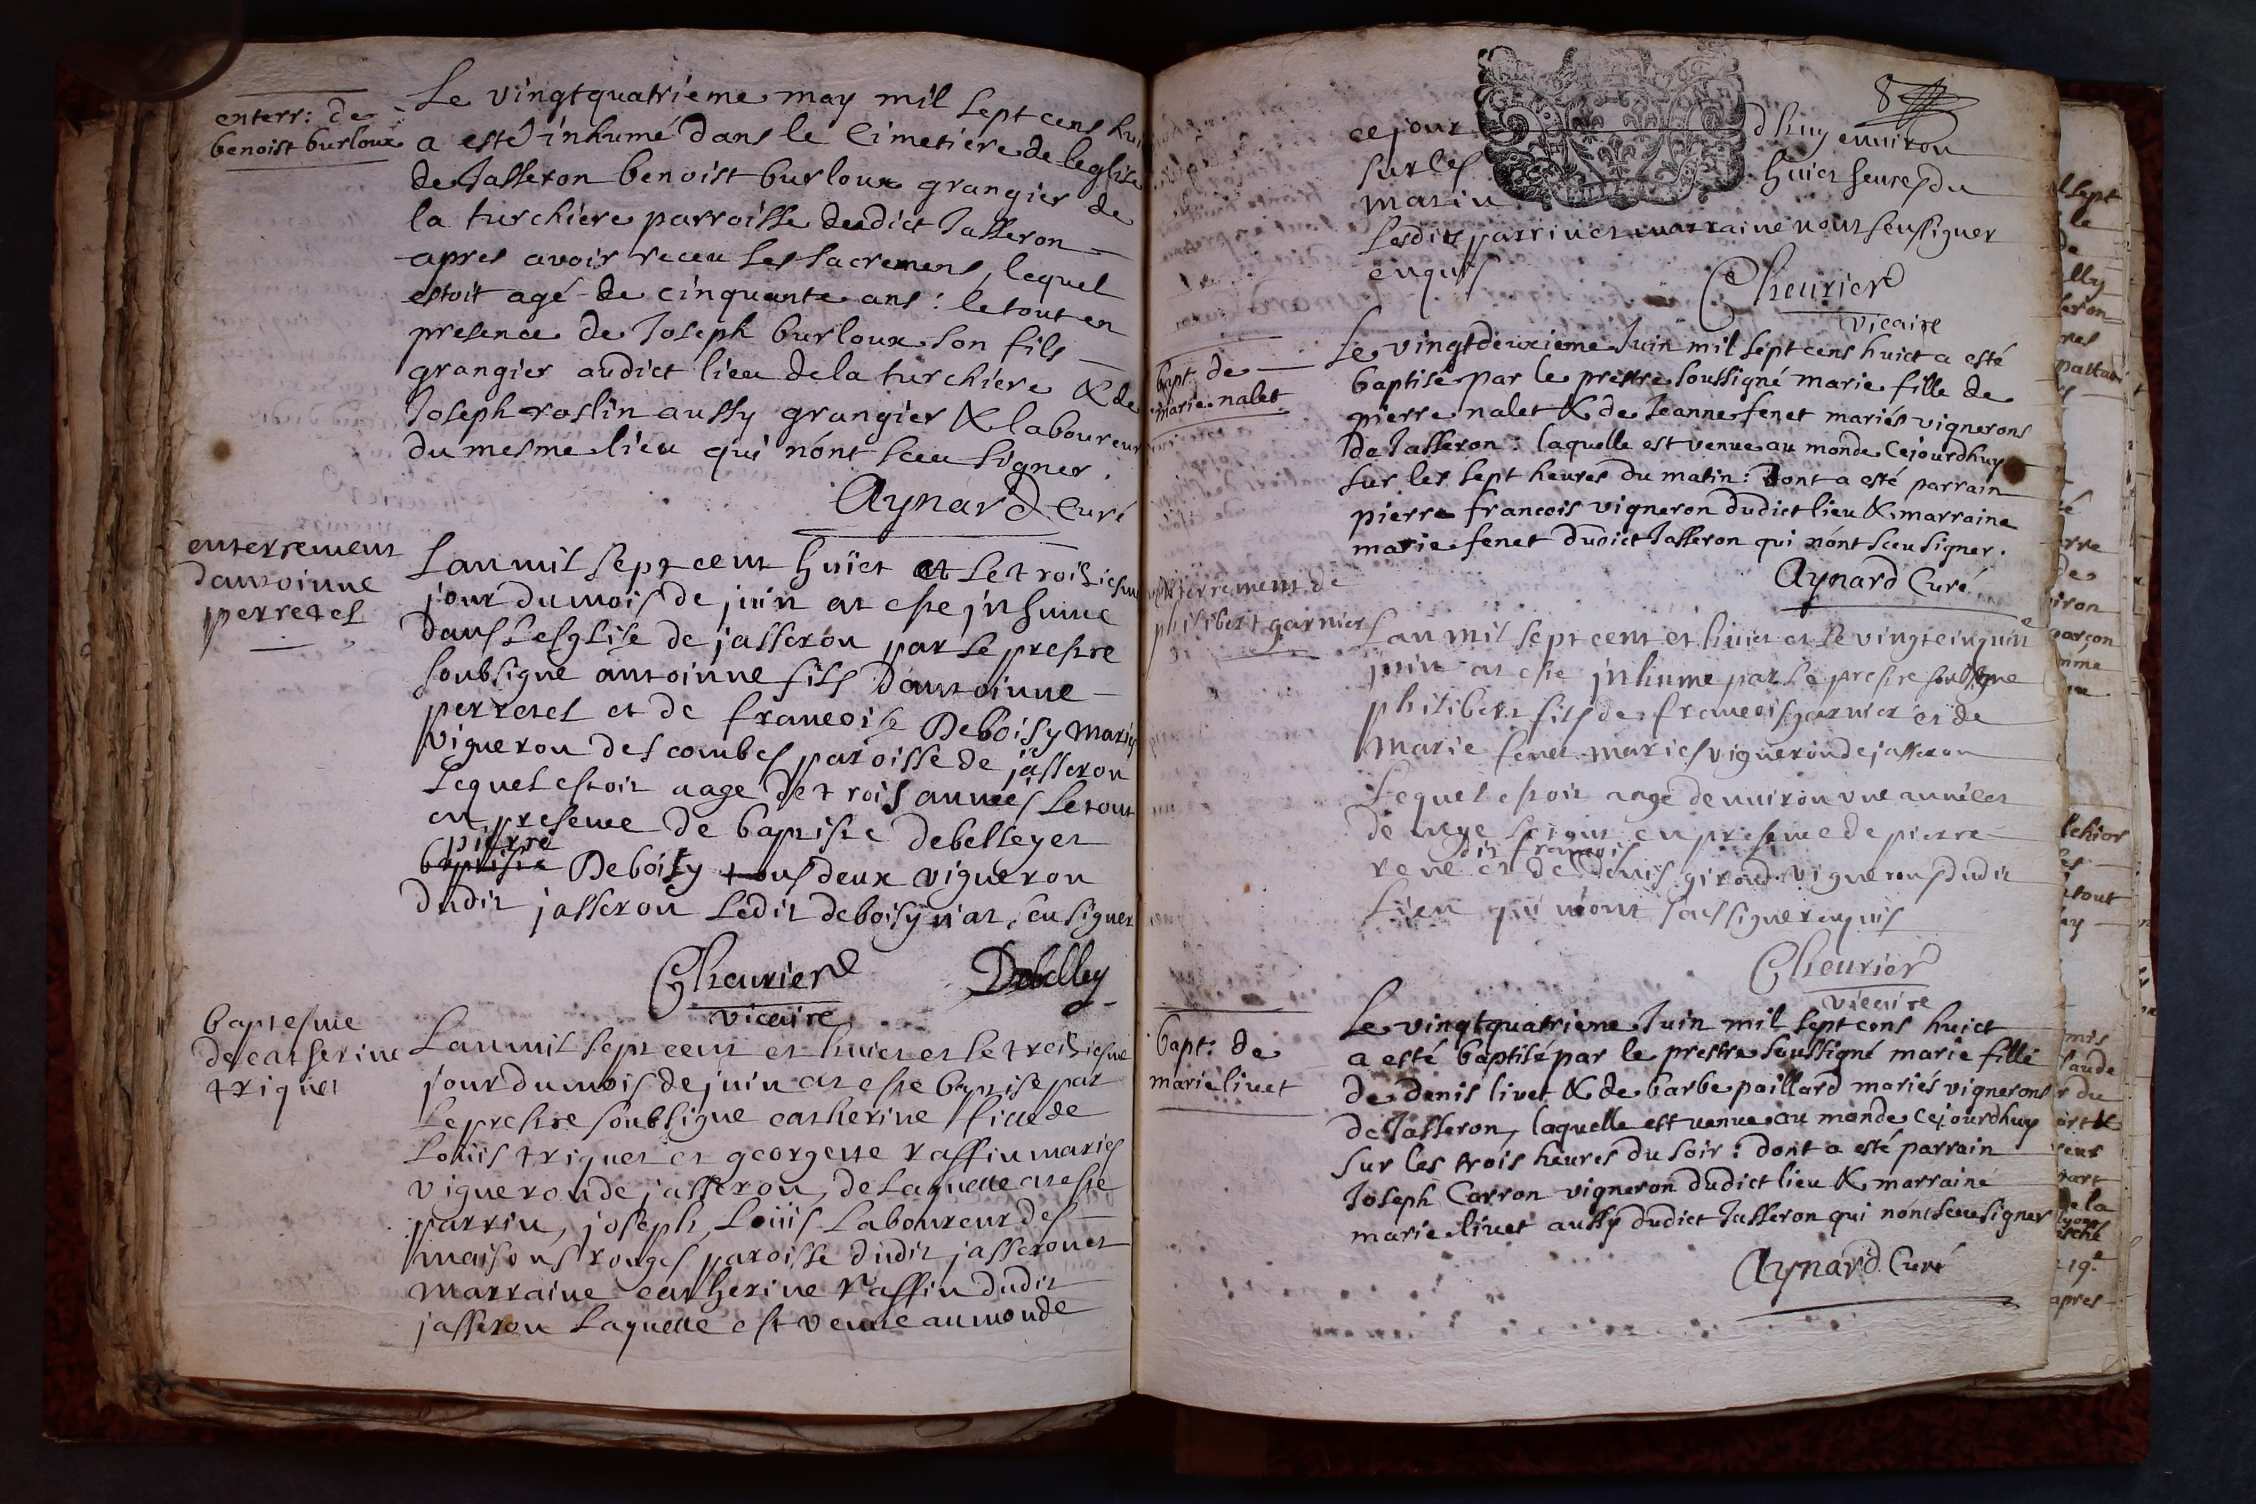 enterr: de
benoist burloux
Le vingtquatrieme may mil sept cens huict
a esté inhumé dans le Cimetiere de leglise
de Jasseron benoist burloux grangier de
la turchiere parroisse dudict Jasseron
apres avoir receu les sacremens, lequel
estoit agé de cinquante ans: le tout en
presence de Joseph burloux son fils
grangier audict lieu de la turchiere & de
Joseph roslin aussy grangier & laboureur
du mesme lieu qui n'ont sceu signer.
Aynard Curé
enterrement
dantoinne
perretel
Lan mil sept cent huict et le troisiesme
jour du mois de juin at este jnhume
dans lesglise de jasseron par le prestre
soubsigne antoinne fils dantoinne
perretel et de francoise Deboisy maries
vigneron des combes paroisse de jasseron
lequel estoit aage de trois annees le tout
en presence de baptiste debelleyet
pierre
baptiste Deboisy tous deux vigneron
dudit jasseron ledit deboisy n'at seu signer
Cheurier Debelley
vicaire
baptesme
de catherine
triquet
Lan mil sept cent et huict et le troisiesme
jour du mois de juin at este baptise par
le prestre soubsigne catherine fille de
Louis triquet et georgette raffin maries
vigneron de jasseron, de laquelle at este
parrin, joseph Louis laboureur des
maisons rouges paroisse dudit jasseron et
marraine catherine raffin dudit
jasseron laquelle est venue au monde
8
ce jour dhuy environ
sur les huict heures du
matin
lesdits parrin et marraine nont seu signer
enquis
Cheurier
vicaire
bapt. de
marie nalet
Le vingtdeuxieme Juin mil sept cens huict a esté
baptisé par le prestre soussigné marie fille de
pierre nalet & de Jeanne fenet mariés vignerons
de Jasseron: laquelle est venue au monde cejourdhuy
sur les sept heures du matin: dont a esté parrain
pierre francois vigneron dudict lieu & marraine
marie fenet dudict Jasseron qui n'ont sceu signer.
Aynard Curé
enterrement de
philibert garnier
Lan mil sept cent et huict et le vingt cinquie
juin at este jnhume par le prestre soubsigne
philibert fils de francois garnier et de
marie fenet maries vigneron de jasseron
lequel estoit aage denuiron vne année et
demye le tout en presence de pierre
dit francois
rene et de denis girod vignerons dudit
lieu qui n'ont seu signer enquis
Cheurier
vicaire
bapt: de
marie liuet
Le vingtquatrieme Juin mil sept cens huict
a esté baptisé par le prestre soussigné marie fille
de denis liuet & de barbe paillard mariés vignerons
de Jasseron, laquelle est venue au monde cejourdhuy
sur les trois heures du soir: dont a esté parrain
Joseph Carron vigneron dudict lieu & marraine
marie liuet aussy dudict Jasseron qui nont sceu signer
Aynard Curé